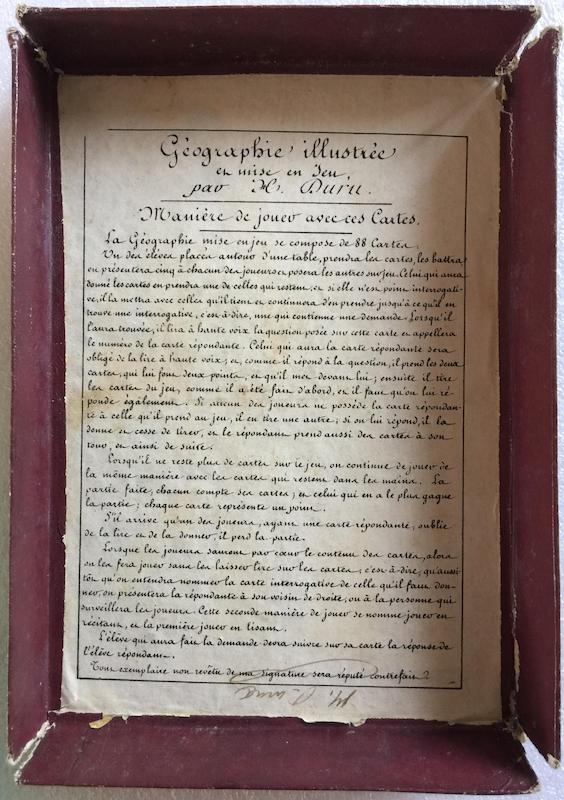 Géographie illustrée
et mise en Jeu,
par H. Duru.
Manière de jouer avec ces Cartes.
La Géographie mise en jeu se compose de 88 Cartes.
Un des élèves placés autour d'une table, prendra les cartes, les battra
en présentera cinq à chacun des joueurs et posera les autres sur jeu. Celui qui aura
donné les cartes en prendra une de celles qui restent, et si elle n'est point interrogati-
ve, il la mettra avec celles qu'il tient et continuera d'en prendre jusqu'à ce qu'il en
trouve une interrogative, c'est-à-dire, une qui contienne une demande. Lorsqu'il
l'aura trouvée, il lira à haute voix la question posée sur cette carte et appellera
le numéro de la carte répondante. Celui qui aura la carte répondante sera
obligé de la lire à haute voix; et, comme il répond à la question, il prend les deux
cartes, qui lui font deux points, et qu'il met devant lui; ensuite il tire
les cartes du jeu, comme il a été fait d'abord, et il faut qu'on lui ré-
ponde également. Si aucun des joueurs ne possède la carte répondan-
te à celle qu'il prend au jeu, il en tire une autre; si on lui répond, il la
donne et cesse de tirer, et le répondant prend aussi des cartes à son
tour, et ainsi de suite.
Lorsqu'il ne reste plus de cartes sur le jeu, on continue de jouer de
la même manière avec les cartes qui restent dans les mains. La
partie faite, chacun compte ses cartes; et celui qui en a le plus gagne
la partie; chaque carte représente un point.
S'il arrive qu'un des joueurs, ayant une carte répondante, oublie
de la lire et de la donner, il perd la partie.
Lorsque les joueurs sauront par cœur le contenu des cartes, alors
on les fera jouer sans les laisser lire sur les cartes; c'est-à-dire, qu'aussi-
tôt qu'on entendra nommer la carte interrogative de celle qu'il faut don-
ner, on présentera la répondante à son voisin de droite, ou à la personne qui
surveillera les joueurs. Cette seconde manière de jouer se nomme jouer en
récitant, et la première jouer en lisant.
L'élève qui aura fait la demande devra suivre sur sa carte la réponse de
l'élève répondant.
Tout exemplaire non revêtu de ma signature sera réputé contrefait.
H. Duru